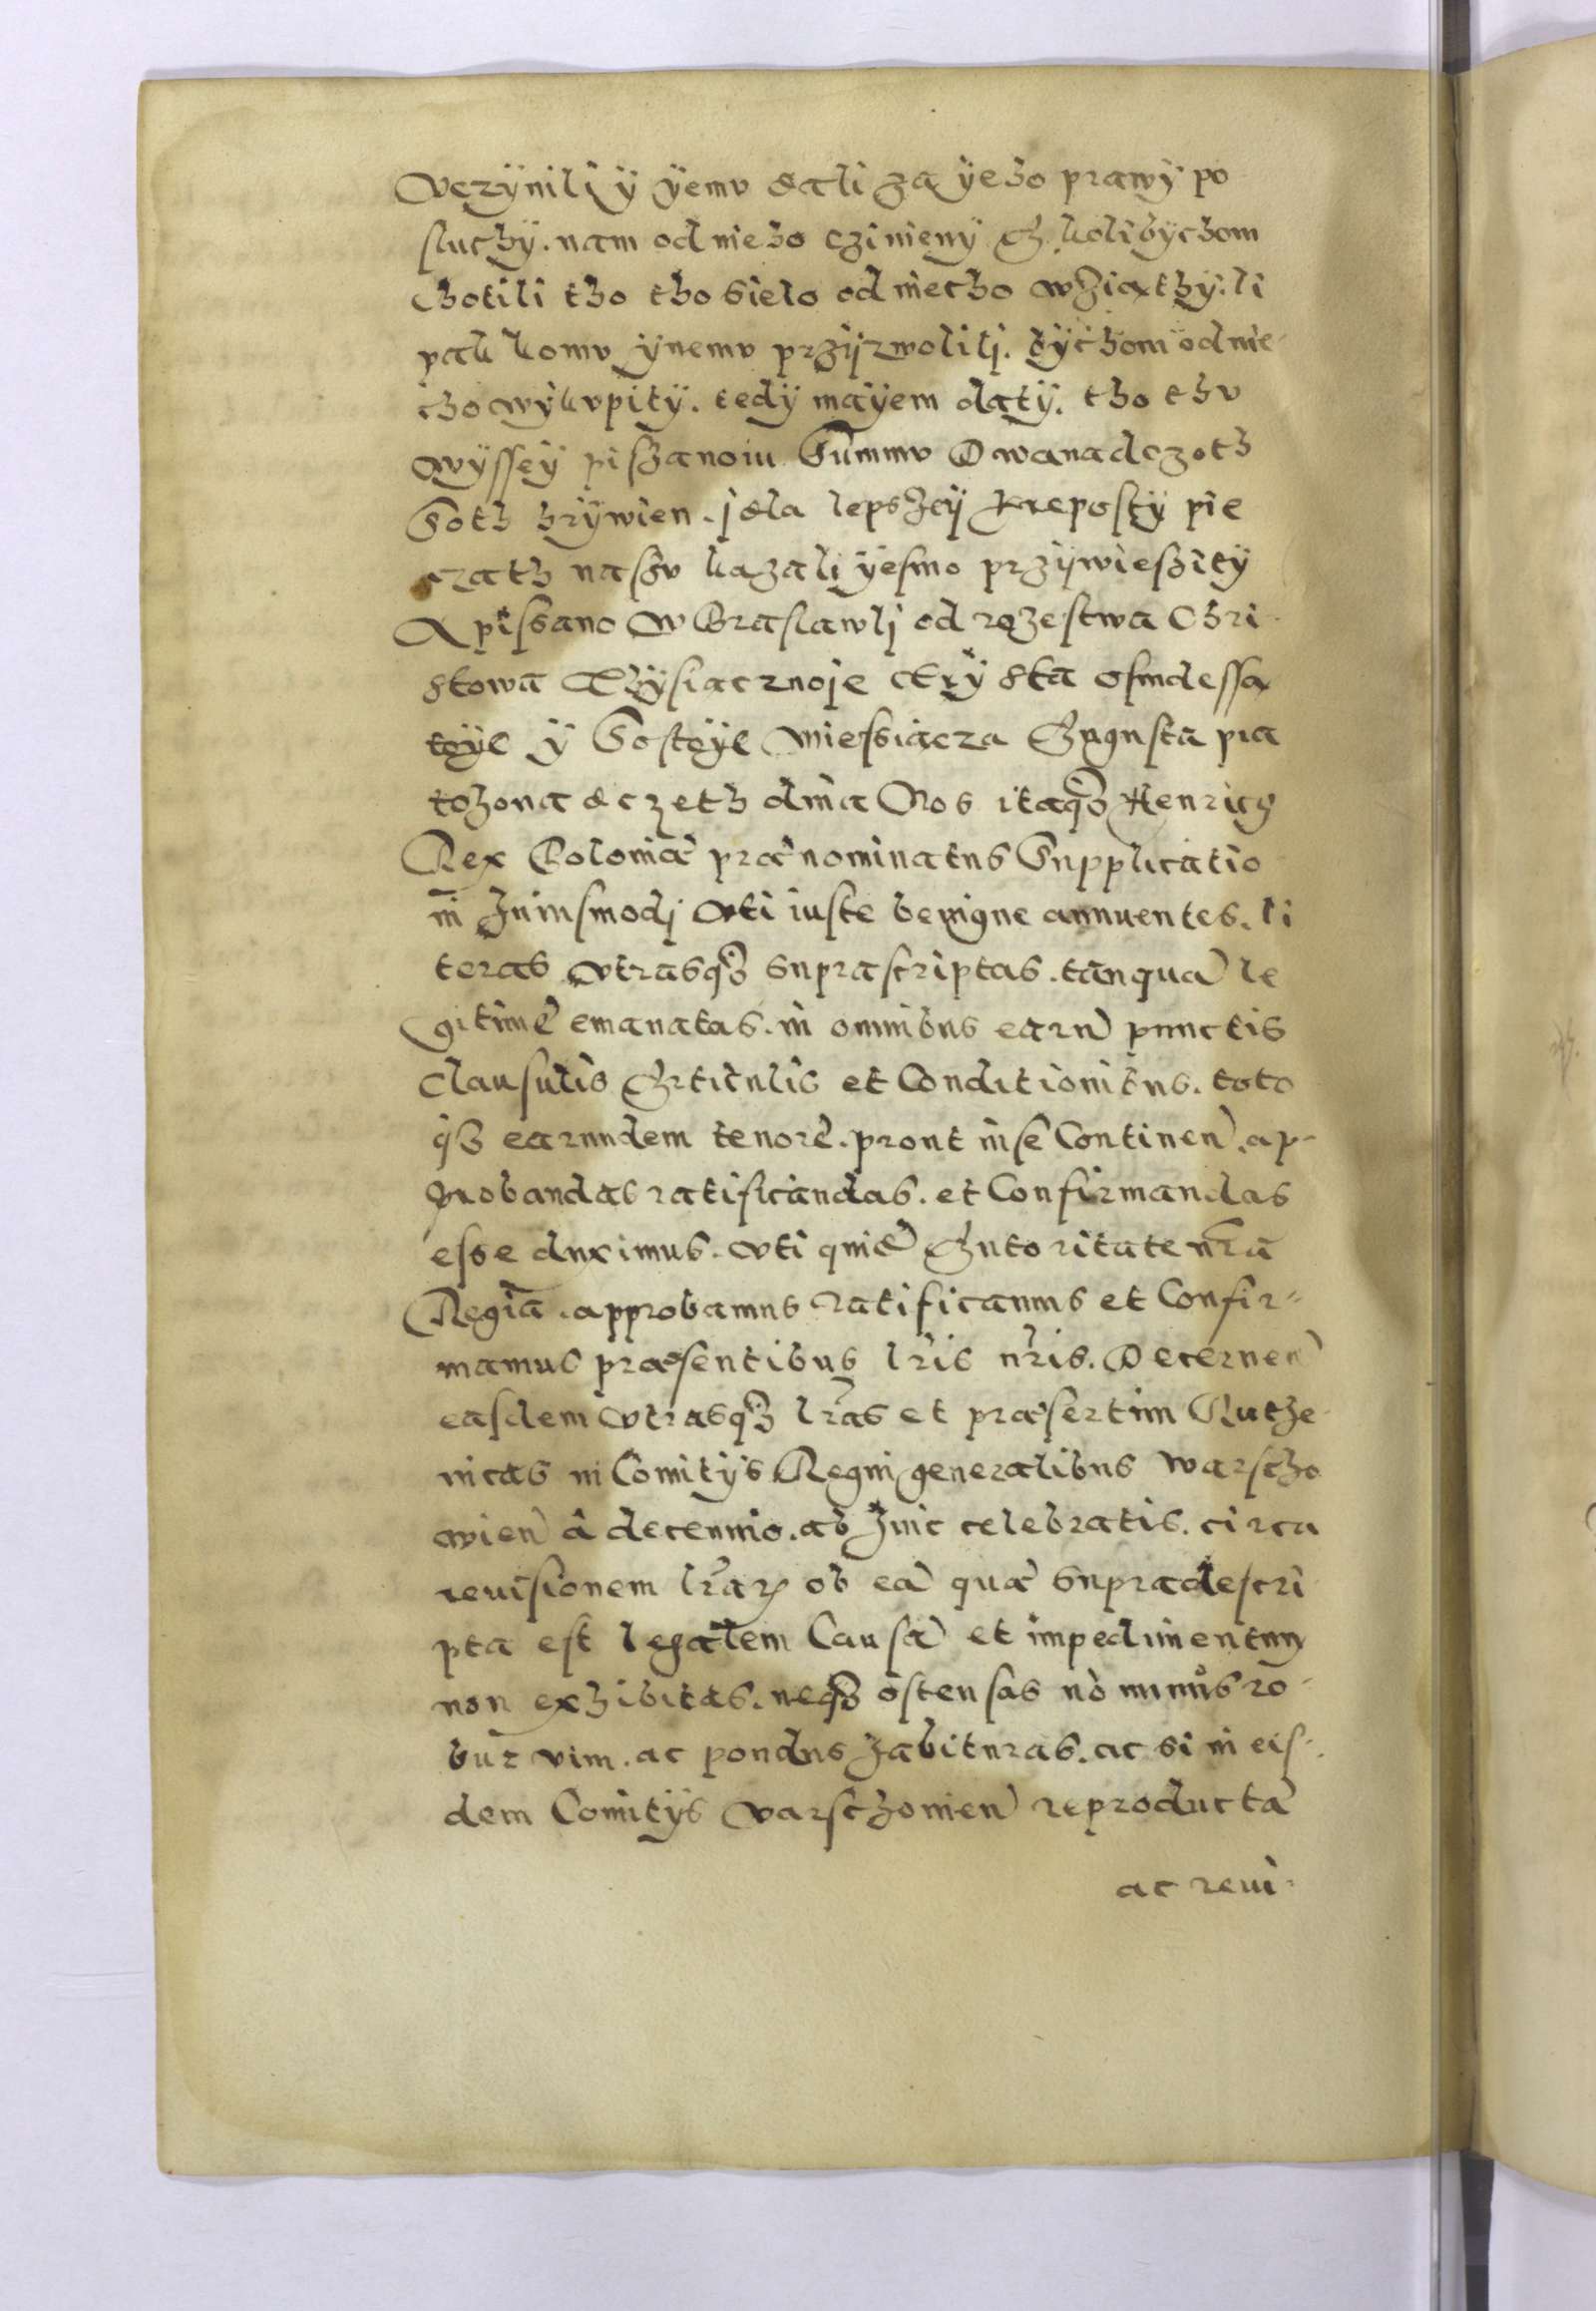 Vczÿnilÿ ÿ ÿemv dali za ÿeho prawÿ po
sluchÿ. nam od nieho czinienÿ A kolibÿchom
chotili tho tho sielo od niecho wziathÿ. li
pak komv ÿnemv przÿzwolilj. bÿchom od nie-
cho wÿkvpitÿ. tedÿ maÿem datÿ. tho thv
wÿsseÿ piszanoiu Summv Dwanadczoth
Soth hrÿwien. j dla lepszeÿ krepostÿ pie
czath naszv kazali ÿesmo przÿwieszitÿ
A pissano W Braslawlj od rozestwa Chri-
stowa Thÿsiacznoje ctrÿ sta osmdessa
toÿe ÿ Sostoÿe miessiacza Augusta pia
tohona dczeth dnia Nos itaq3 Henricus
Rex Poloniæ prænominatus Supplicatio
ni huiusmodj vti iuste benigne annuentes. li
teras vtrasq3 suprascriptas. tanquā le
gitimē emanatas. in omnibus earū punctis
Clausulis Articulis et Conditionibus. toto
q3 earundem tenorē. prout in se Continen̄. ap-
probandas ratificandas. et Confirmandas
esse duximus. vti quidē Autoritate nr̄a
Regia. approbamus ratificamus et Confir-
mamus præsentibus lr̄is nr̄is. Decernen̄
easdem vtrasq3 lr̄as et præsertim Ruthe-
nicas in Comitÿs Regni generalibus Warscho
wien̄ â decennio. ab hinc celebratis. circa
reuisionem lr̄aꝝ ob eā quæ supradescri
pta est legalem Causā et impedimentum
non exhibitas. neq3 ostensas nō minus ro-
bur vim. ac pondus habituras. ac si in eis-
dem Comitÿs Varschouien̄ reproductæ
ac reui-